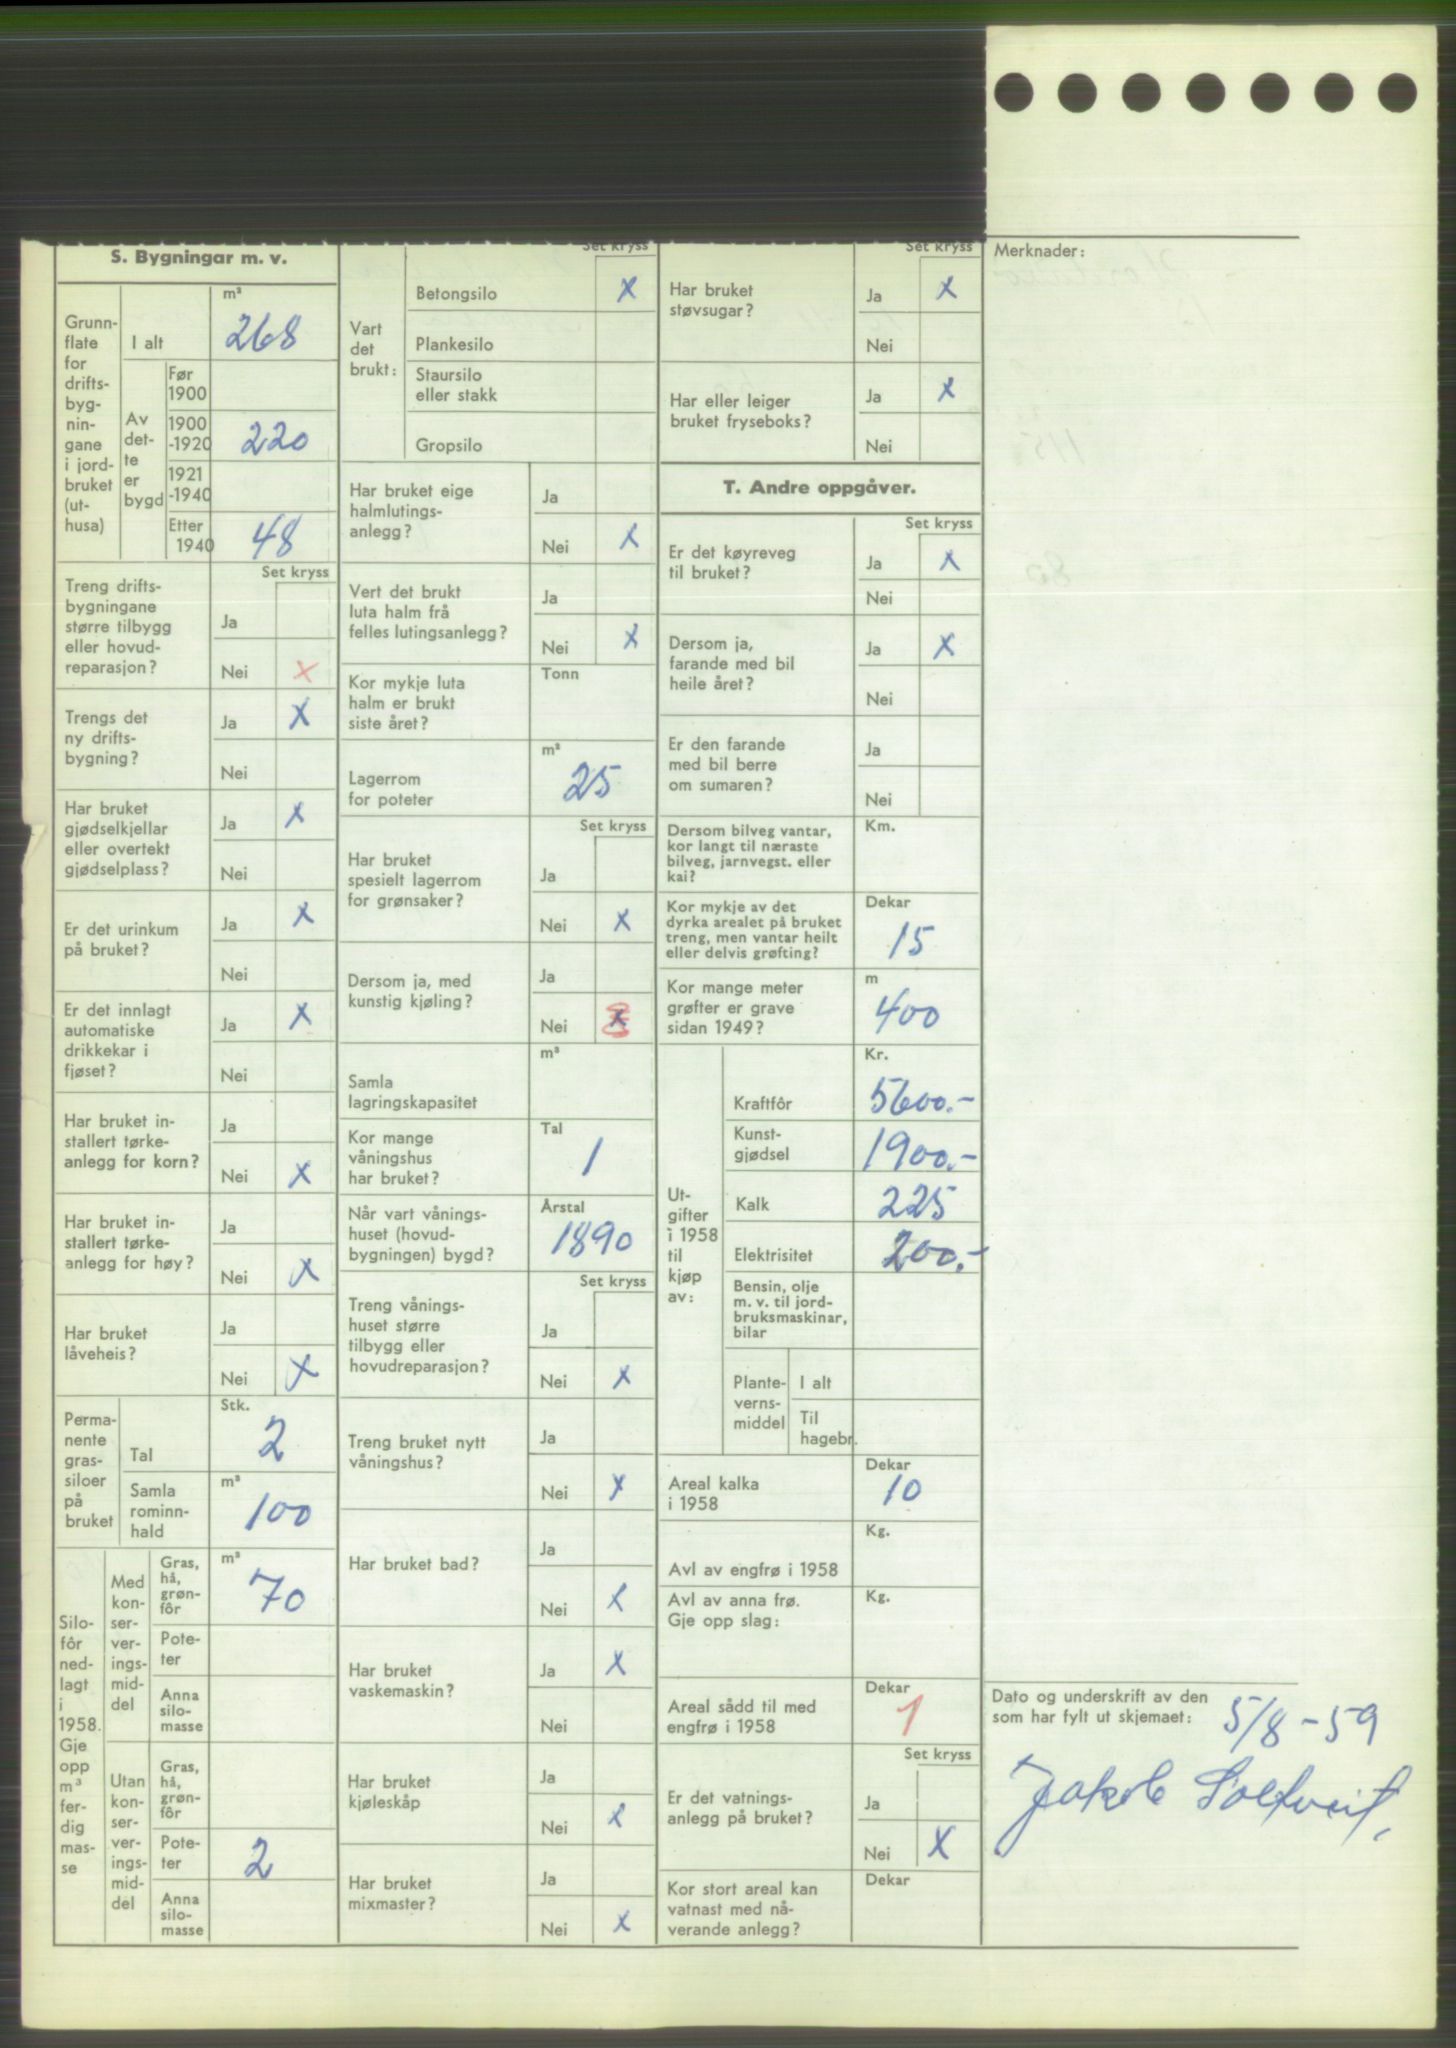 S. Bygningar m. v.
Grunn-
flate
for
drifts-
byg-
nin-
gane
i jord-
bruket
(ut-
husa)
I alt
m²
268
Av
det-
te
er
bygd
Før
1900
1900
-1920
220
1921
-1940
Etter
1940
48
Set kryss
Treng drifts-
bygningane
større tilbygg
eller hovud-
reparasjon?
Ja
Nei X
Trengs det
ny drifts-
bygning?
Ja X
Nei
Har bruket
gjødselkjellar
eller overtekt
gjødselplass?
Ja X
Nei
Er det urinkum
på bruket?
Ja X
Nei
Er det innlagt
automatiske
drikkekar i
fjøset?
Ja X
Nei
Har bruket in-
stallert tørke-
anlegg for korn?
Ja
Nei X
Har bruket in-
stallert tørke-
anlegg for høy?
Ja
Nei X
Har bruket
låveheis?
Ja
Nei X
Perma-
nente
gras-
siloer
på
bruket
Tal
Stk.
2
Samla
rominn-
hald
m³
100
Silo-
fôr
ned-
lagt
i
1958.
Gje
opp
m³
fer-
dig
mas-
se
Med
kon-
ser-
ver-
ings-
mid-
del
Gras,
hå,
grøn-
fôr
m³
70
Pote-
ter
Anna
silo-
masse
Utan
kon-
ser-
ver-
ings-
mid-
del
Gras,
hå,
grøn-
fôr
Pote-
ter
2
Anna
silo-
masse
Set kryss
Vart
det
brukt:
Betongsilo X
Plankesilo
Staursilo
eller stakk
Gropsilo
Har bruket eige
halmlutings-
anlegg?
Ja
Nei X
Vert det brukt
luta halm frå
felles lutingsanlegg?
Ja
Nei X
Kor mykje luta
halm er brukt
siste året?
Tonn
Lagerrom
for poteter
m²
25
Set kryss
Har bruket
spesielt lagerrom
for grønsaker?
Ja
Nei X
Dersom ja, med
kunstig kjøling?
Ja
Nei X
Samla
lagringskapasitet
m³
Kor mange
våningshus
har bruket?
Tal
1
Når vart vånings-
huset (hovud-
bygningen) bygd?
Årstal
1890
Set kryss
Treng vånings-
huset større
tilbygg eller
hovudreparasjon?
Ja
Nei X
Treng bruket nytt
våningshus?
Ja
Nei X
Har bruket bad?
Ja
Nei X
Har bruket
vaskemaskin?
Ja X
Nei
Har bruket
kjøleskåp
Ja
Nei X
Har bruket
mixmaster?
Ja
Nei X
Set kryss
Har bruket
støvsugar?
Ja X
Nei
Har eller leiger
bruket fryseboks?
Ja X
Nei
T. Andre oppgåver.
Set kryss
Er det køyreveg
til bruket?
Ja X
Nei
Dersom ja,
farande med bil
heile året?
Ja X
Nei
Er den farande
med bil berre
om sumaren?
Ja
Nei
Dersom bilveg vantar,
kor langt til næraste
bilveg, jarnvegst. eller
kai?
Km.
Kor mykje av det
dyrka arealet på bruket
treng, men vantar heilt
eller delvis grøfting?
Dekar
15
Kor mange meter
grøfter er grave
sidan 1949?
m
400
Ut-
gifter
i 1958
til
kjøp
av:
Kr.
Kraftfôr 5600.-
Kunst-
gjødsel 1900.-
Kalk 225
Elektrisitet 200.-
Bensin, olje
m. v. til jord-
bruksmaskinar,
bilar
Plante-
verns-
middel
I alt
Til
hagebr.
Areal kalka
i 1958
Dekar
10
Avl av engfrø i 1958
Kg.
Avl av anna frø.
Gje opp slag:
Kg.
Areal sådd til med
engfrø i 1958
Dekar
1
Set kryss
Er det vatnings-
anlegg på bruket?
Ja
Nei X
Kor stort areal kan
vatnast med nå-
verande anlegg?
Dekar
Merknader:
Dato og underskrift av den
som har fylt ut skjemaet: 5/8-59
Jakob Soltveit,